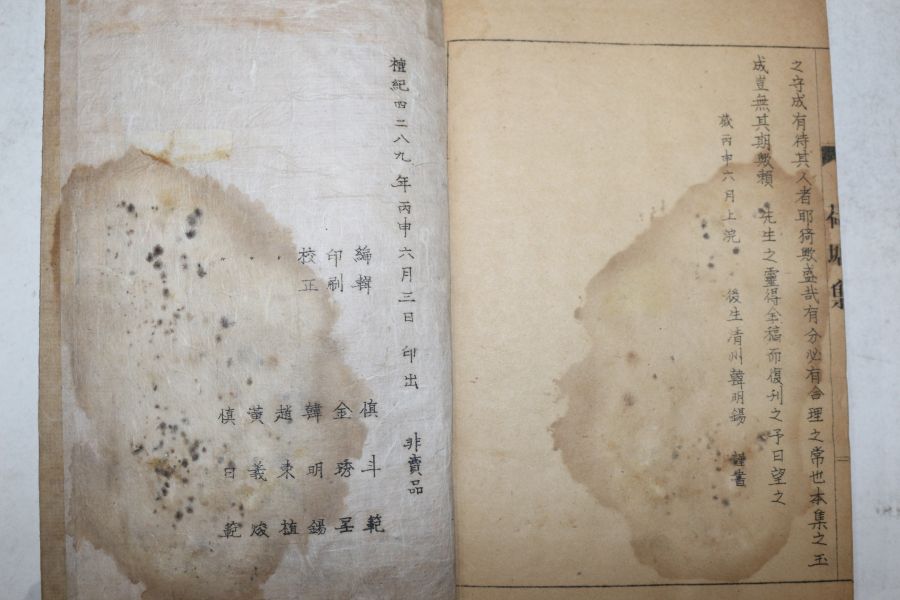 之守成有待其人者耶猗歟盛哉有分必有合理之常也本集之玉
成豈無其期歟賴 先生之靈得全稿而復刊之予日望之
歲丙申六月上浣 後生清州韓明錫 謹書
檀紀四二八九年丙申六月三日 印出 非賣品
編輯
印刷
校正
愼斗範
金琇呈
韓明錫
趙東植
黃義焌
愼日範